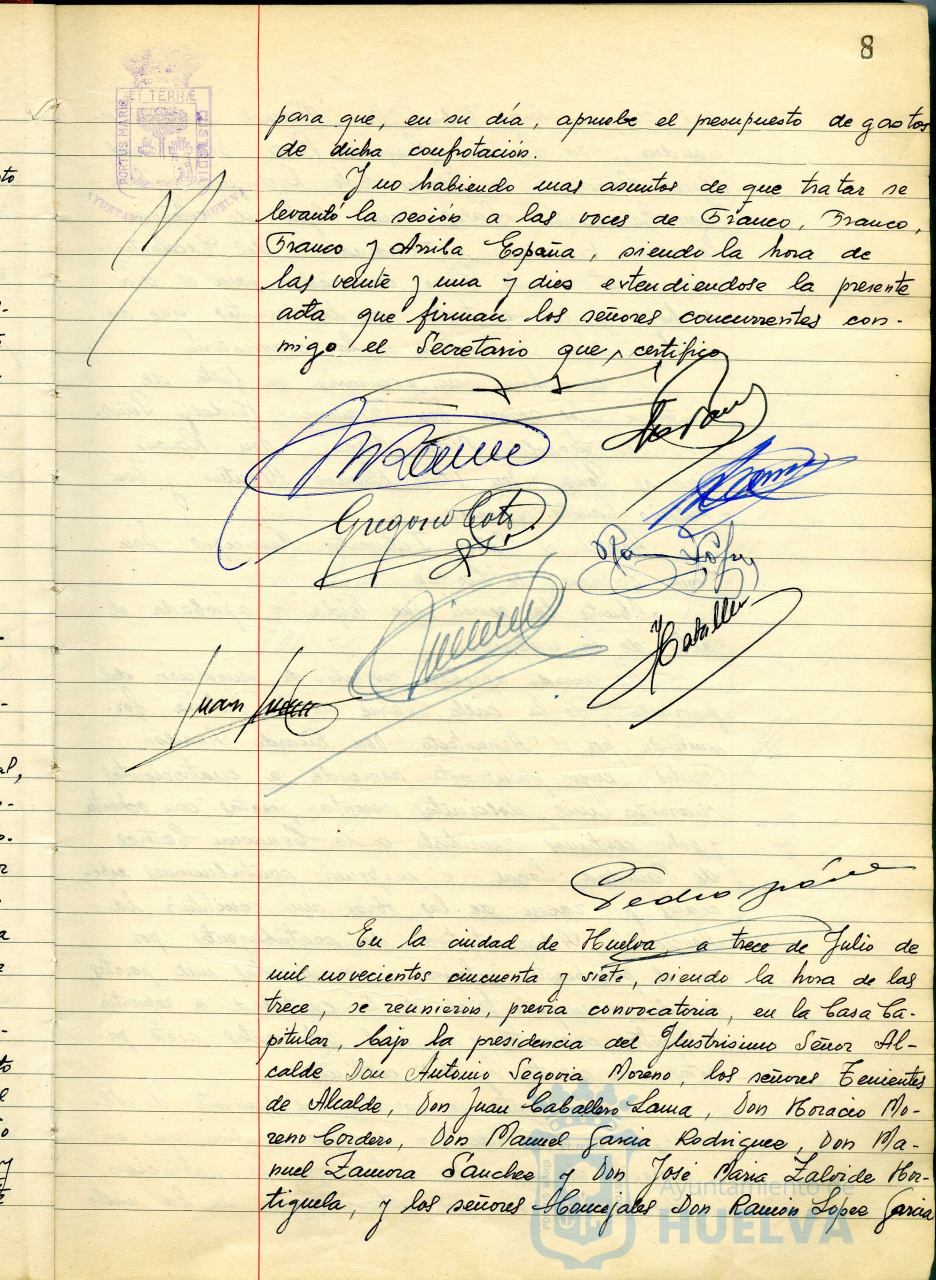 8
ET TERRÆ
PORTUS MARIS
CUSTODIA
para que, en su día, apruebe el presupuesto de gastos
de dicha confrotación.
Y no habiendo mas asuntos de que tratar se
levantó la sesión a las voces de Franco, Franco,
Franco y Arriba España, siendo la hora de
las veinte y una y dies extendiendose la presente
acta que firman los señores concurrentes con-
migo el Secretario que, certifico
Gregorio Coto
Juan
Pedro
En la ciudad de Huelva, a trece de Julio de
mil novecientos cincuenta y siete, siendo la hora de las
trece, se reunieron, previa convocatoria, en la Casa Ca-
pitular, bajo la presidencia del Ilustrisimo Señor Al-
calde Don Antonio Segovia Moreno, los señores Tenientes
de Alcalde, Don Juan Caballero Lama, Don Horacio Mo-
reno Cordero, Don Manuel Garcia Rodriguez, Don Ma-
nuel Zamora Sanchez y Don José Maria Zalvide Hor-
tiguela, y los señores Concejales Don Ramón Lopez Garcia
Ayuntamiento de
HUELVA